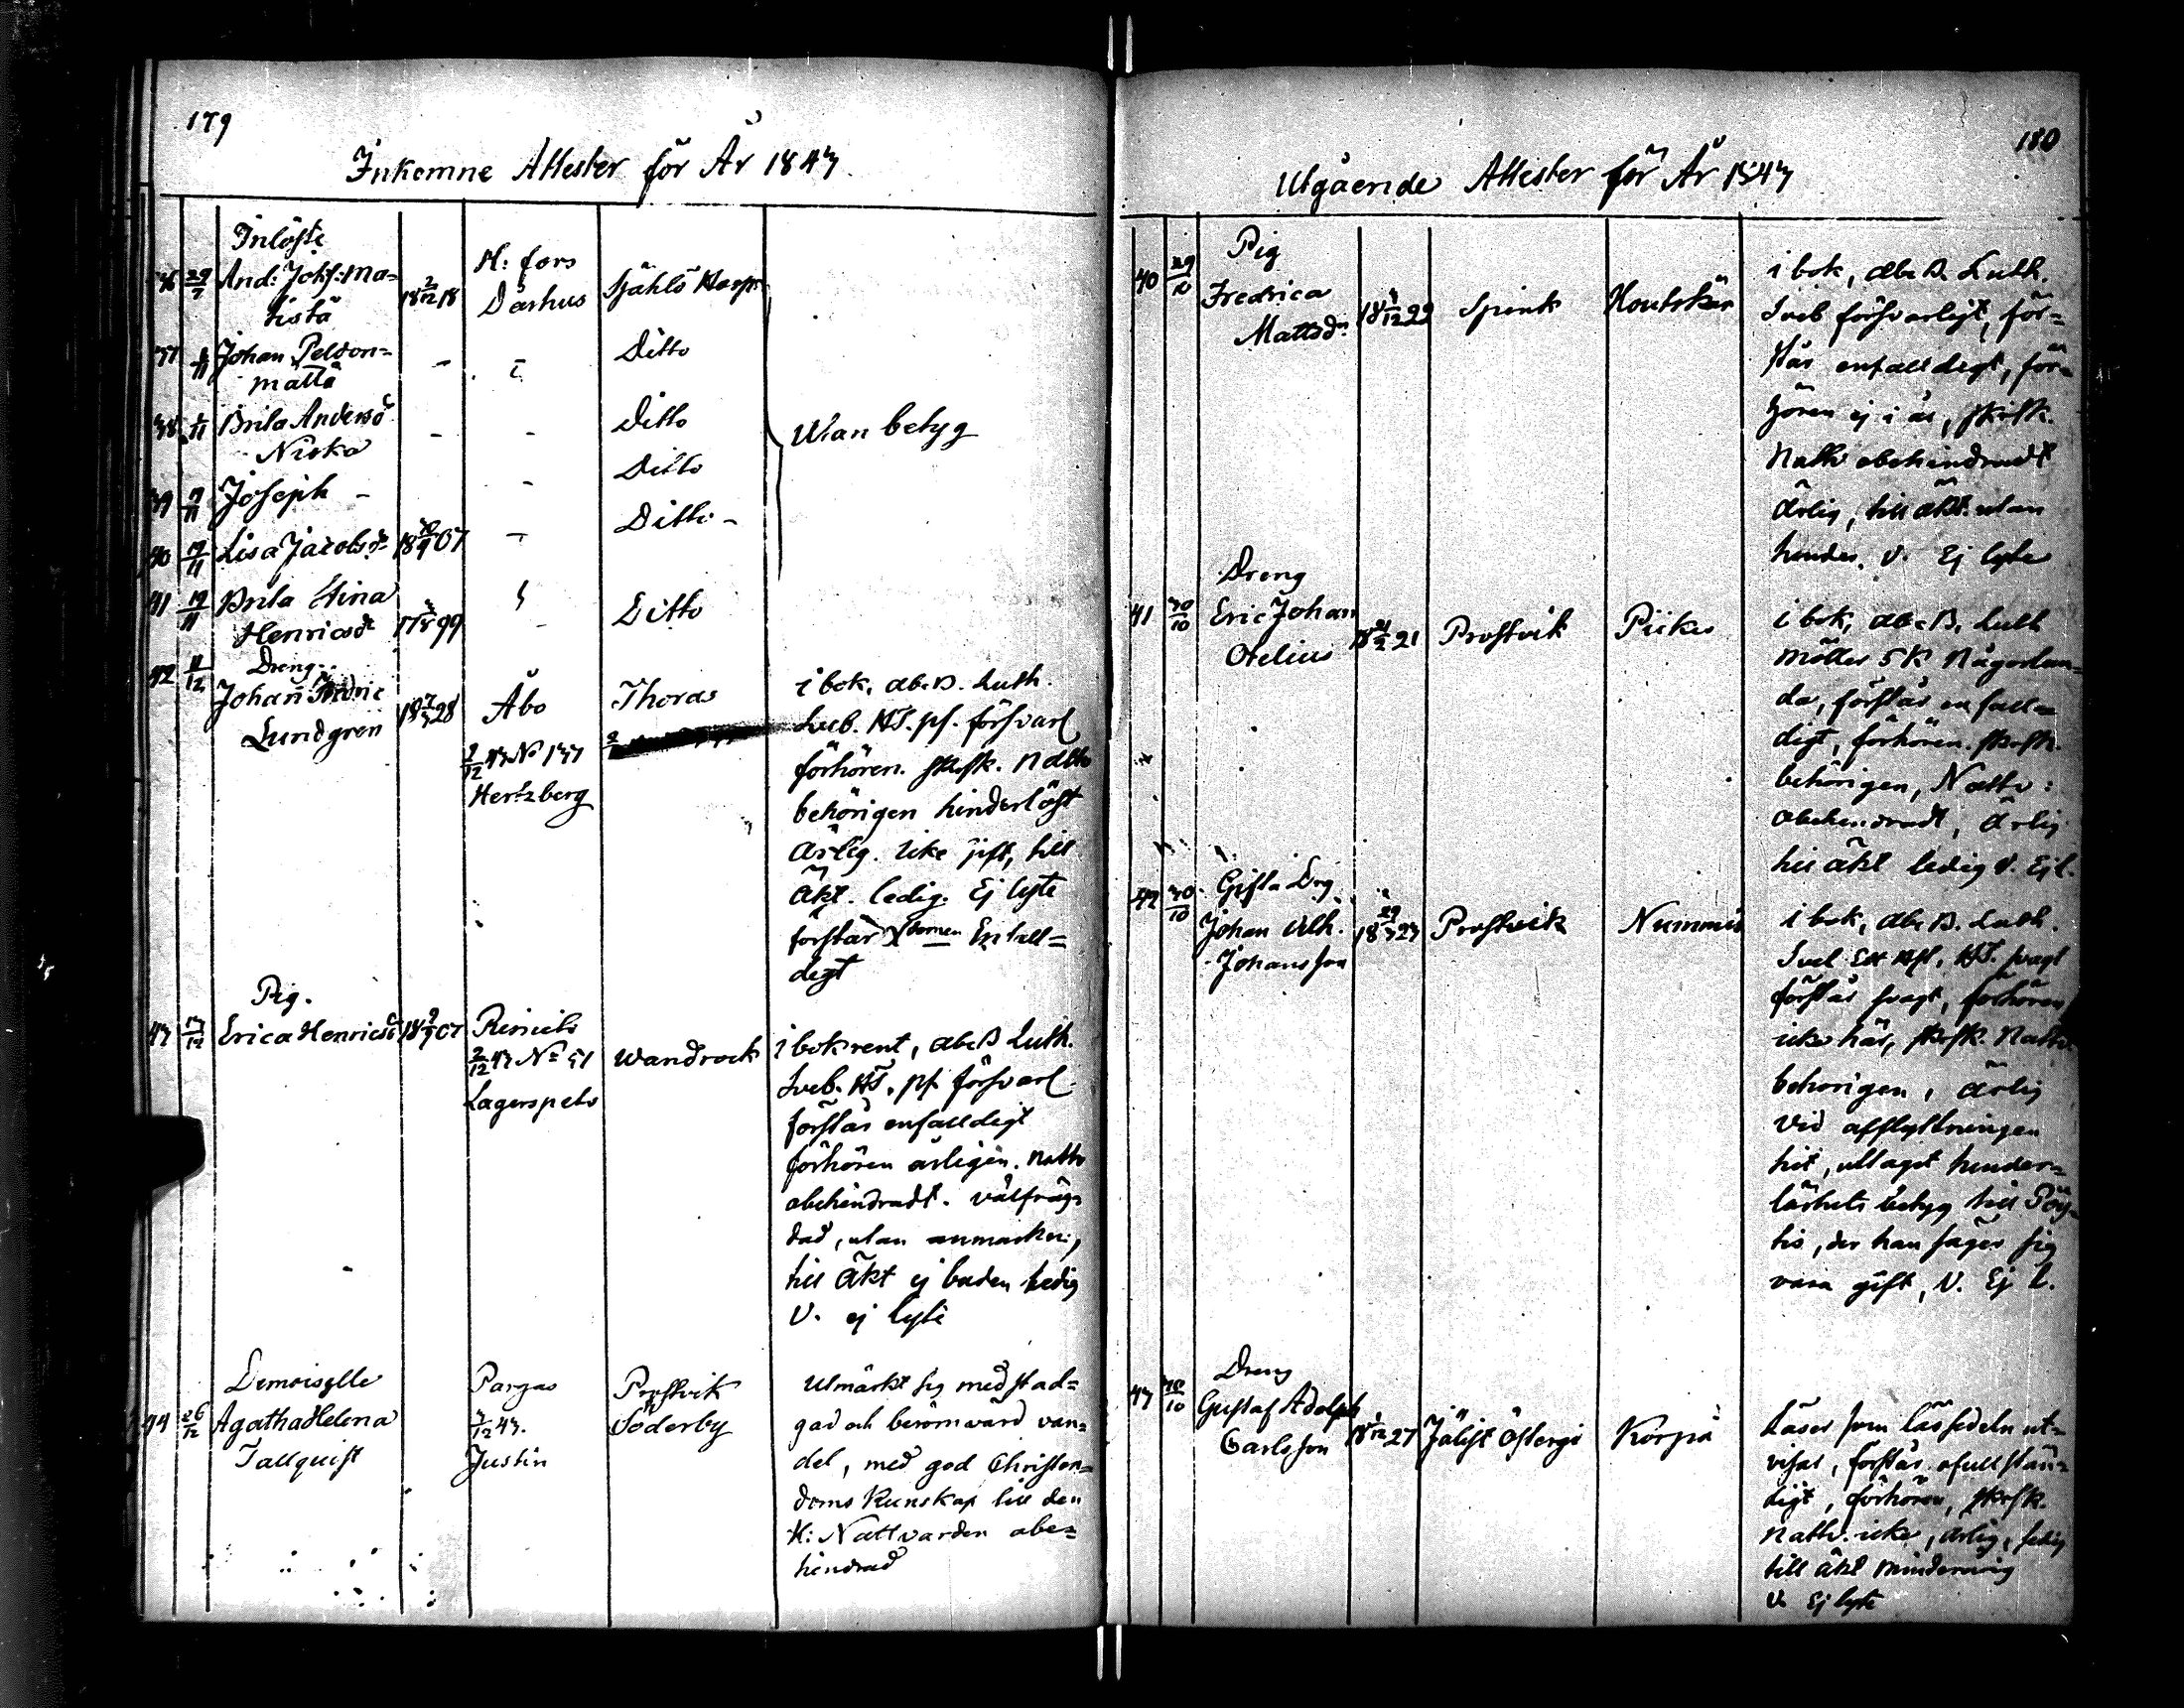 179
Inkomne Attester för År 1843
Inlöste
And: Johs: Ma=
tista
29/7
18 2/12 18
H: fors
Dårhus
Sjählö Hosp.
37 Johan Peldon=
matta
Ditto
38 Brita Andersd
Niska
Ditto
39 Joseph -
Ditto
Utan betyg
40 Lisa Jacobsd 07
Ditto -
41 19/11 Brita Stina
Henricsdr 99
Ditto
42 11/12 Dreng
Johan Fredric
Lundgren
28
Åbo
2/12 43 No 137
Hertzberg
Thoras
i bok, abc B. Luth.
Sveb. HT. ps. försvarl
förhören. skrsk. Nattv
behörigen hinderlöst
ärlig. icke gift, till
äkt. ledig. Ej lyte
förstår Xdomen Enfall=
digt
Pig.
43 Erica Henricsd 07
Rimito
2/12 43 No 51
Lagerspets
Wandrock
i bok rent, abc B Luth.
Sveb. HT. ps. försvarl
förstår enfalldigt
förhören årligen. Nattv
obehindradt. välfräg
dad, utan anmärkn:,
till äkt ej buden ledig
V. ej lyte
Demoiselle
44 26/12 Agatha Helena
Tallquist
Pargas
43.
Justin
Prostvik
Söderby
Utmärkt sig med stad=
gad och berömvärd van=
del, med god Christen=
doms Kunskap till den
H: Nattvarden obe=
hindrad
180
Utgående Attester för År 1843
Pig
40 Fredrica
Mattsdr
29
Spink
Houtskär
i bok, abc B. Luth.
Sveb försvarligt, för=
står enfalldigt, för=
hören ej i år, skrsk.
Nattv obehindradt
ärlig, till äkt. utan
hinder. V. Ej lyte
Dreng
41 30/10 Eric Johan
Orelius
21
Prostvik
Piikis
i bok, abc B. Luth
Möller 5 K någorlun=
da, förstår enfall=
digt, förhören. skrsk.
behörigen, Nattv:
obehindradt, ärlig
till äkt ledig V. Ej l.
Gifta Drg
42 30/10 Johan Wilh.
Johansson
18 29/3 23
Prostvik
Nummis
i bok, abc B. Luth.
Sveb HT. svagt
förstår svagt, förhören
icke här, skrsk. Nattv
behörigen, ärlig
Vid afflyttningen
hit, uttagit hinder=
löshets betyg till Pöy=
tis, der han säger sig
vara gift, V. Ej l.
Dreng
43 30/10 Gustaf Adolph
Carlsson
27
Jälist Östergå
Korpå
Läser som läs sedeln ut=
visar, förstår ofullstän=
digt, förhören, skrsk.
Nattv. icke, ärlig, ledig
till äkt minderårig
V. Ej lyte